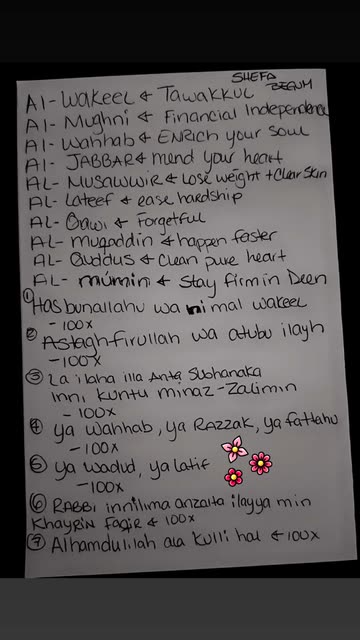 SHEFA
BEGUM
Al-Wakeel & Tawakkul
Al-Mughni & Financial Independence
Al-Wahhab & ENRICH your soul
Al-JABBAR & mend your heart
AL-Musawwir & Lose weight + Clear Skin
AL-Lateef & ease hardship
AL-Qawi & Forgetful
AL-muqaddin & happen faster
AL-Quddus & Clean pure heart
AL-múmin & Stay firm in Deen
① Hasbunallahu wa ni mal wakeel
- 100x
② Astaghfirullah wa atubu ilayh
- 100x
③ La ilaha illa Anta Subhanaka
inni kuntu minaz-Zalimin
- 100x
④ ya wahhab, ya RAZZAK, ya fattahu
- 100x
⑤ ya wadud, ya latif
- 100x
⑥ RABBI innilima anzalta ilayya min
Khayrin faqir & 100x
⑦ Alhamdulilah ala kulli hal & 100x